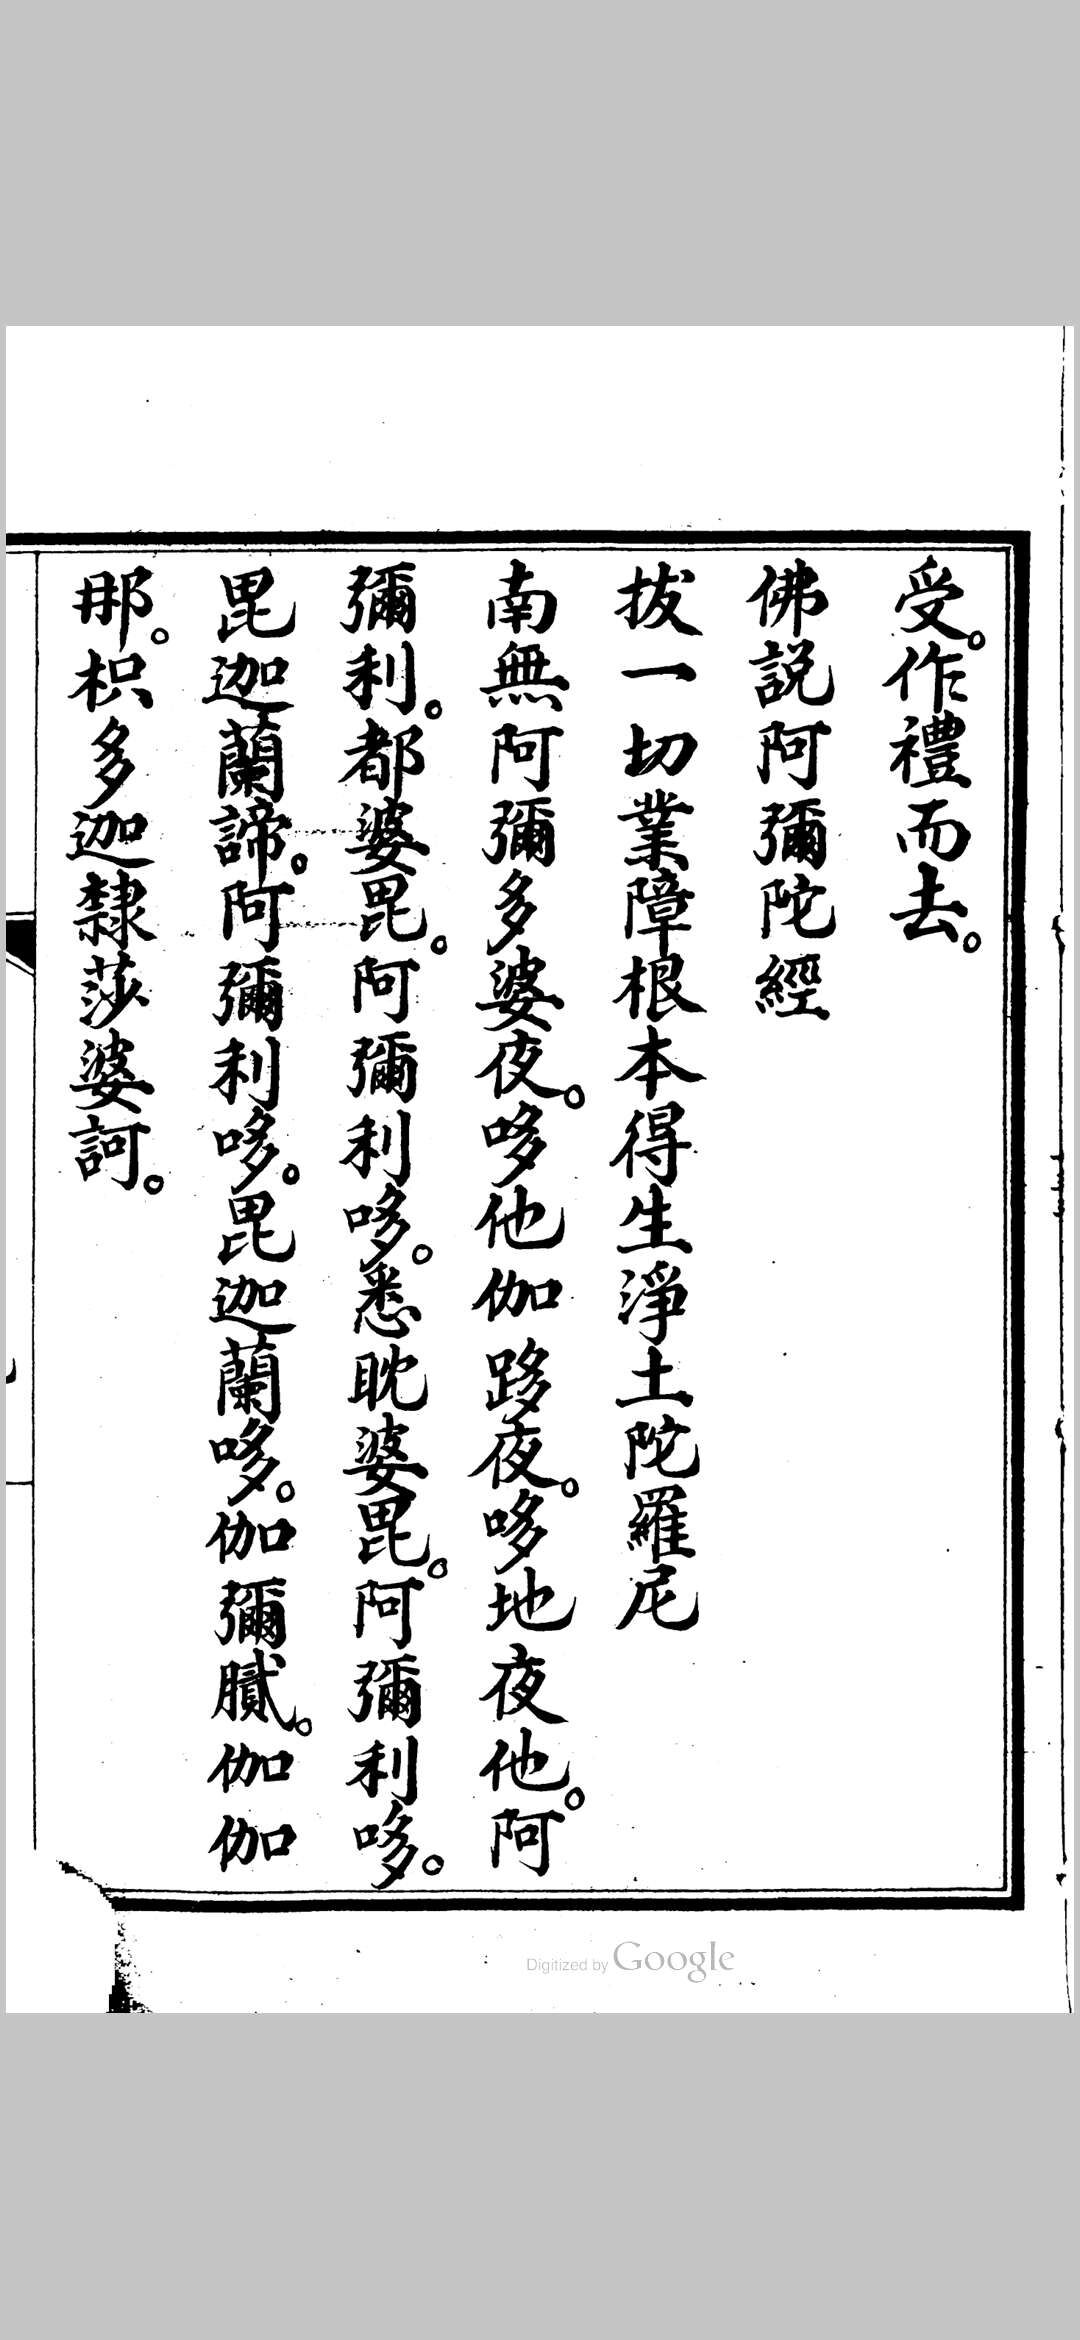 受。作禮而去。
佛說阿彌陀經
拔一切業障根本得生淨土陀羅尼
南無阿彌多婆夜。哆他伽跢夜。哆地夜他。阿
彌利。都婆毘。阿彌利哆。悉眈婆毘。阿彌利哆。
毘迦蘭諦。阿彌利哆。毘迦蘭哆。伽彌膩。伽伽
那。枳多迦隸莎婆訶。
Digitized by Google